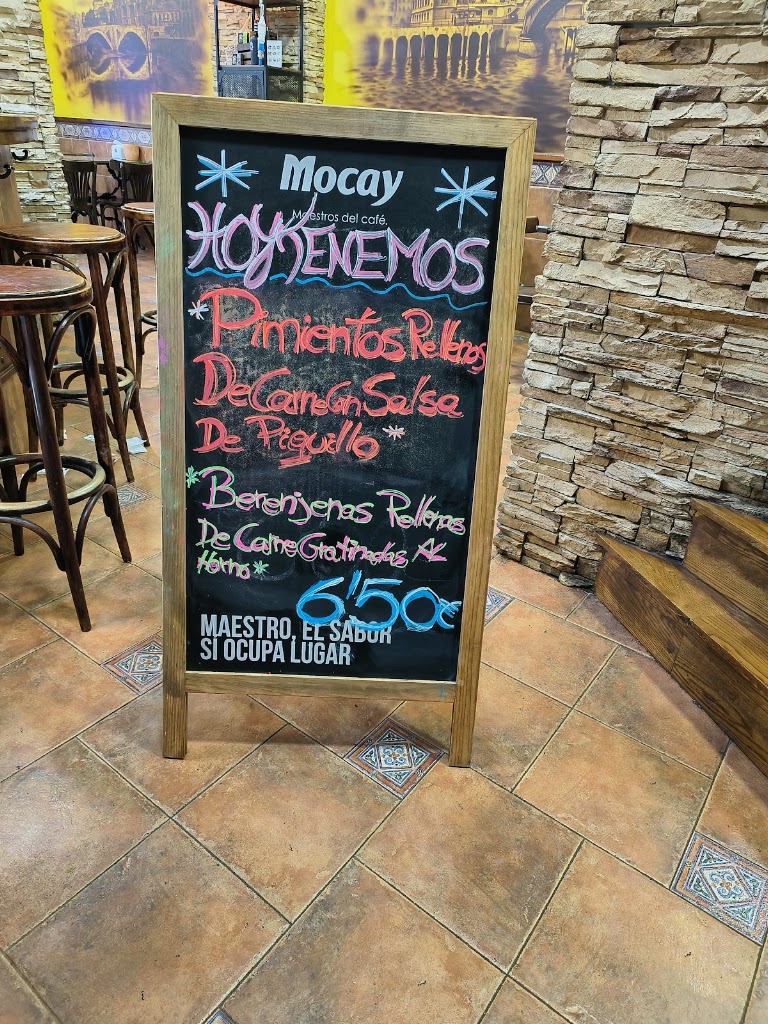 Mocay
Maestros del café.
HOY TENEMOS
* Pimientos Rellenos
De Carne Con Salsa
De Piquillo *
* Berenjenas Rellenas
De Carne Gratinadas AL
Horno *
6'50€
MAESTRO, EL SABOR
SI OCUPA LUGAR